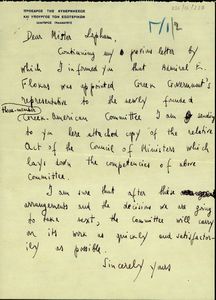 ΠΡΟΕΔΡΟΣ ΤΗΣ ΚΥΒΕΡΝΗΣΕΩΣ
ΚΑΙ ΥΠΟΥΡΓΟΣ ΤΩΝ ΕΣΩΤΕΡΙΚΩΝ
Dear Mister Lapham,
Continuing my previous letter by
which I informed you that Admiral E.
Fhokas was appointed Greek Government's
representative to the newly founded
three-member
Greek-American Committee I am sending
to you here attached copy of the relative
Act of the Council of Ministers which
lays down the competencies of above
Committee.
I am sure that after these
arrangements and the decisions we are going
to take next, the Committee will carry
on its work as quickly and satisfactor-
ily as possible.
Sincerely yours